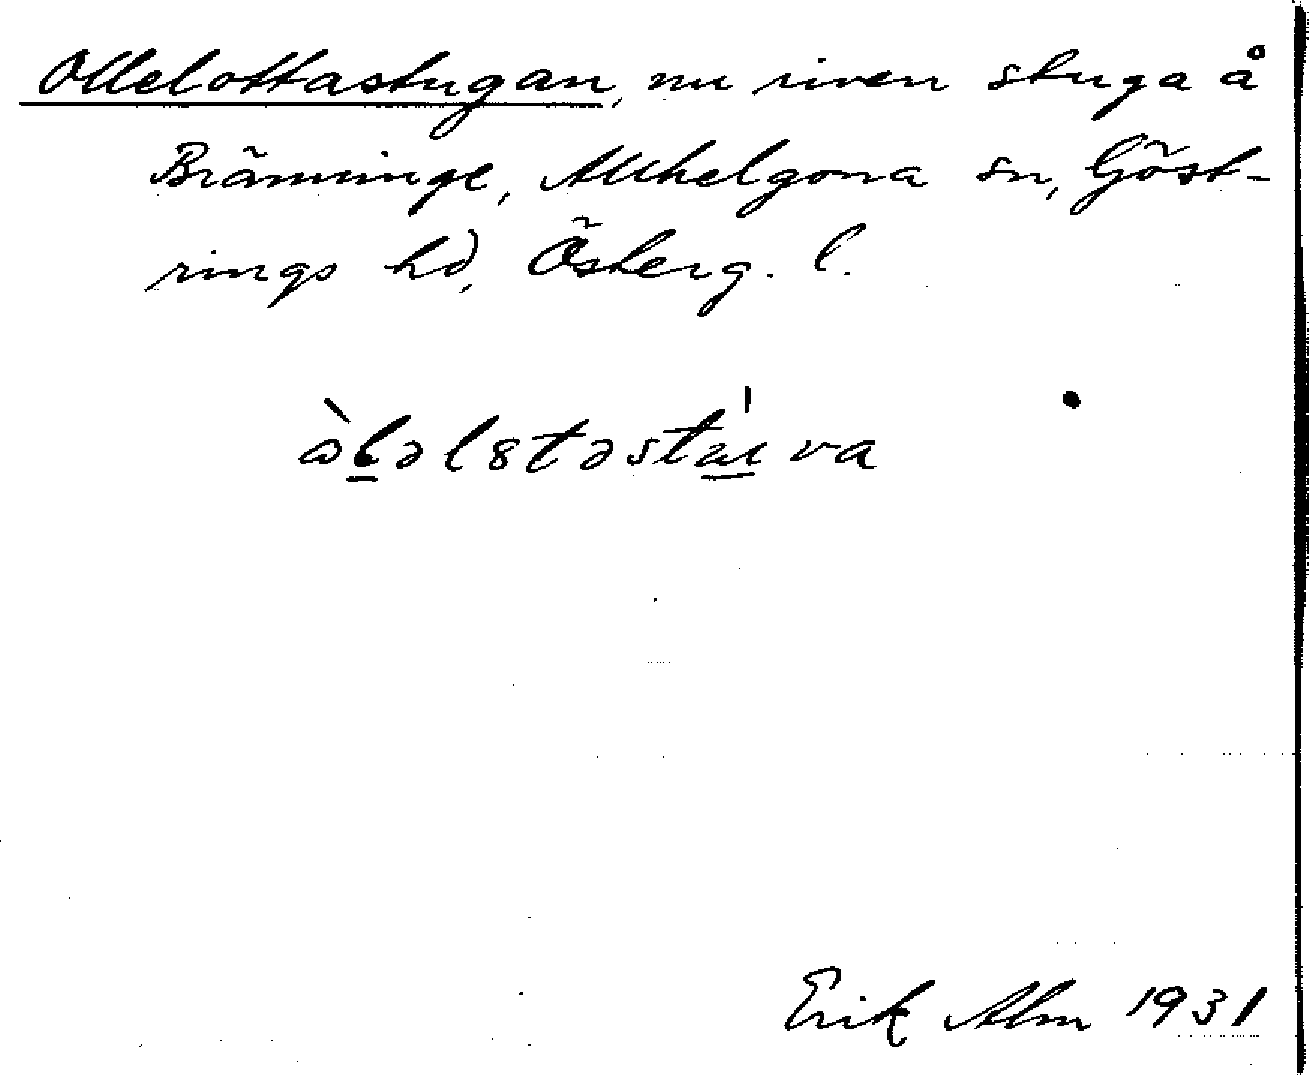 Ollelottastugan, nu riven stuga å
Bränninge, Allhelgona sn, Göst-
rings hd, Österg. l.
Erik Alm 1931